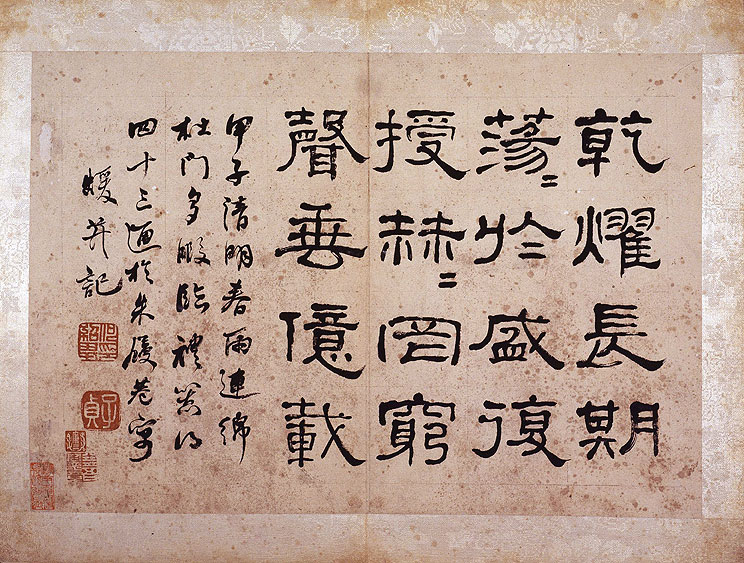 乾燿長期
蕩=於盛復
授赫=罔窮
聲垂億載
甲子清明春雨連綿
杜門多暇臨禮器得
四十三通於朱履巷寓
蝯并記
何紹基印
子貞